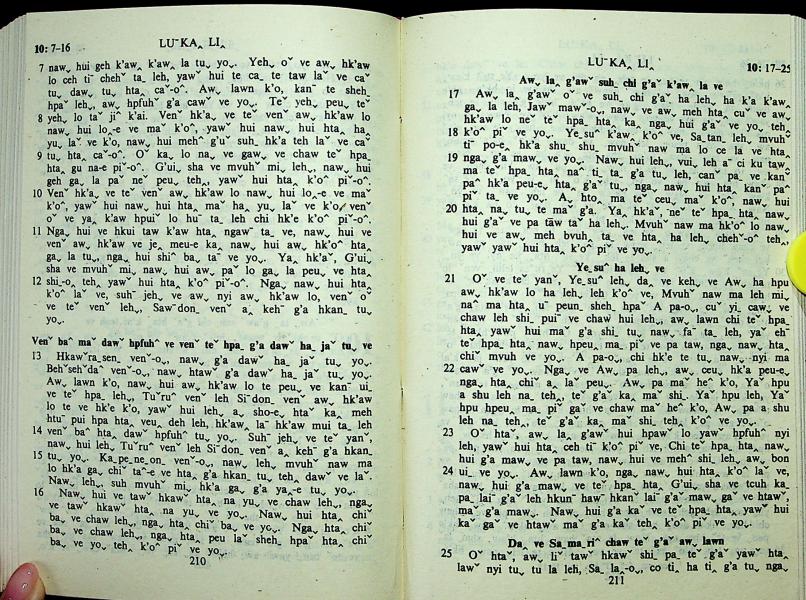 10: 7-16
LUˇ KAˬ LIˬ
7 nawˬ hui geh k'awˬ k'awˬ la tuˬ yoˬ. Yehˬ oˇ ve awˬ hk'aw
lo ceh tiˉ chehˇ ta̱ lehˬ, yawˇ hui te ca̱ te taw laˇ ve caˇ
tuˬ dawˬ tuˬ htaˬ caˇ-oˆ. Awˬ lawn k'o, kanˉ te shehˬ
hpaˇ lehˬ, awˬ hpfuhˇ g'a cawˇ ve yoˬ. Teˇ yehˬ peuˬ teˇ
8 yehˬ lo taˇ jiˆ k'ai. Venˇ hk'aˬ ve teˇ venˇ awˬ hk'aw lo
nawˬ hui lo̱-e ve maˇ k'oˆ, yawˇ hui nawˬ hui htaˬ haˬ
yuˬ laˇ ve k'o, nawˬ hui mehˆ g'uˇ suhˬ hk'a teh laˇ ve caˆ
9 tuˬ htaˬ caˇ-oˆ. Oˇ ka̱ lo naˬ ve gawˬ ve chaw teˇ hpaˬ
htaˬ gu na-e piˇ-oˆ. G'uiˬ sha ve mvuhˇ miˬ lehˬ, nawˬ hui
geh ga̱ la paˇ neˇ peuˬ tehˬ, yawˇ hui htaˬ k'oˆ piˇ-oˆ.
10 Venˇ hk'aˬ ve teˇ venˇ awˬ hk'aw lo nawˬ hui lo̱-e ve maˇ
k'oˆ, yawˇ hui nawˬ hui htaˬ maˇ haˬ yuˬ laˇ ve k'o, venˇ
oˇ ve yaˬ k'aw hpuiˇ lo huˇ ta̱ leh chi hk'e k'oˆ piˇ-oˆ.
11 Ngaˬ hui ve hkui taw k'aw htaˬ ngawˇ ta̱ ve, nawˬ hui ve
venˇ awˬ hk'aw ve jeˬ meu-e ka̱ nawˬ hui awˬ hk'oˆ htaˬ
ga̱ la tuˬ, ngaˬ hui shiˆ ba̱ ta̱ˇ ve yoˬ. Yaˬ hk'aˇ, G'uiˬ
sha ve mvuhˇ miˬ nawˬ hui awˬ paˇ lo ga̱ la peuˬ ve htaˬ
12 shiˬ-o̱ tehˬ yawˇ hui htaˬ k'oˆ piˇ-oˆ. Ngaˬ nawˬ hui htaˬ
k'oˆ laˇ ve, suhˉ jehˬ ve awˬ nyi awˬ hk'aw lo, venˇ oˇ
ve teˇ venˇ lehˬ, Sawˉ donˬ venˇ a̱ kehˉ g'a hkan̠ tuˬ
yoˬ.
Venˇ baˆ maˇ dawˇ hpfuhˆ ve venˇ teˇ hpa̱ g'a dawˇ ha̱ jaˇ tuˬ ve
13 Hkawˇra̱ senˬ venˇ-oˬ, nawˬ g'a dawˇ ha̱ jaˇ tuˬ yoˬ.
Behˇsehˇdaˆ venˇ-oˬ, nawˬ htawˇ g'a dawˇ ha̱ jaˇ tuˬ yoˬ.
Awˬ lawn k'o, nawˬ hui awˬ hk'aw lo te peuˬ ve kanˉ uiˬ
ve teˇ hpa̱ lehˬ, Tuˇruˆ venˇ leh Siˉdonˬ venˇ awˬ hk'aw
lo te ve hk'e k'o, yawˇ hui leh̠ a̱ sho-eˬ htaˇ ka̱ meh
htuˉ pui hpa htaˬ veuˬ deh lehˬ, hk'awˬ laˇ hk'aw mui ta̱ leh
14 venˇ baˆ htaˬ dawˇ hpfuhˆ tuˬ yoˬ. Suhˉ jehˬ ve teˇ yanˇ,
nawˬ hui lehˬ, Tuˇruˆ venˇ leh Siˉdonˬ venˇ a̱ kehˉ g'a hkan̠
15 tuˬ yoˬ. Ka̱ pe̱ ne̱ on̠ venˇ-oˬ, naw̱ lehˬ mvuhˇ naw ma
lo hk'a ga̱ chiˇ taˆ-e ve htaˬ g'a hkan̠ tuˬ tehˬ dawˇ ve laˇ.
Nawˬ lehˬ, suh mvuhˇ miˬ hk'a ga̱ g'a yaˬ-e tuˬ yoˬ.
16 Nawˬ hui ve tawˇ hkawˇ htaˬ na yuˬ ve chaw lehˬ, ngaˬ
ve tawˇ hkawˇ htaˬ na yuˬ ve yoˬ. Nawˬ hui htaˬ chiˇ
ba̱ ve chaw lehˬ, ngaˬ htaˬ chiˇ ba̱ ve yoˬ. Ngaˬ htaˬ chiˇ
ba̱ ve chaw lehˬ, ngaˬ htaˬ peuˬ laˇ shehˬ hpaˇ htaˬ chiˇ
ba̱ ve yoˬ tehˬ k'oˆ piˇ ve yoˬ.
210
LUˇ KAˬ LIˬ
10: 17-25
Awˬ laˬ g'awˇ suhˬ chi g'aˇ k'awˬ la ve
17 Awˬ laˬ g'awˇ oˇ ve suhˬ chi g'aˇ ha̱ lehˬ, ha k'a k'awˬ
ga̱ la leh, Jawˇ mawˇ-oˬ, nawˬ ve awˬ meh htaˬ cuˇ ve awˬ
hk'aw lo neˇ teˇ hpa̱ htaˬ ka̱ ngaˬ hui g'aˇ ve yoˬ tehˬ
18 k'oˆ piˇ ve yoˬ. Ye̱ suˇ k'awˬ k'oˆ ve, Sa̱ tan̠ lehˬ mvuhˇ
tiˇ po-eˬ hk'a shuˬ shu̱ mvuhˇ naw ma lo ce la ve htaˬ
19 ngaˬ g'a mawˬ ve yoˬ. Nawˬ hui lehˬ, vuiˬ leh aˇ ci ku tawˬ
ma teˇ hpa̱ htaˬ naˇ tiˬ ta̱ g'a tuˬ lehˬ, canˇ paˬ ve kanˇ
paˆ hk'a peu-eˬ htaˬ g'aˇ tuˬ, ngaˬ nawˬ hui htaˬ kanˇ paˆ
piˇ ta̱ ve yoˬ. Aˬ hto̱ ma teˇ ceuˬ maˇ k'oˆ, nawˬ hui
20 htaˬ naˬ tuˬ te maˇ g'a. Yaˬ hk'aˇ, neˇ teˇ hpa̱ htaˬ nawˬ
hui g'aˇ ve pa taw taˇ ha̱ lehˬ. Mvuhˇ naw ma hk'oˆ lo nawˬ
hui ve awˬ meh bvuhˬ ta̱ ve htaˬ ha̱ lehˬ chehˇ-oˆ tehˬ
yawˇ yawˇ hui htaˬ k'oˆ piˇ ve yoˬ.
Ye̱ suˆ ha̱ lehˬ ve
21 Oˇ ve te yanˇ, Ye̱ suˆ lehˬ da̱ˬ ve kehˬ ve Awˬ ha hpu
awˬ hk'aw lo ha̱ lehˬ leh k'oˆ ve, Mvuhˇ naw ma leh miˬ
naˆ ma htaˬ uˇ peun̠ shehˬ hpaˇ A pa-oˬ, cuˇ yiˬ cawˬ ve
chaw leh shi̱ puiˇ ve chawˇ hui lehˬ, awˬ lawn chi teˇ hpa̱
htaˬ yawˇ hui maˇ g'a shi̱ tuˬ nawˬ fa̱ˇ ta̱ lehˬ, yaˇ ehˉ
teˇ hpa̱ htaˬ nawˬ hpeuˬ ma̱ piˇ ve pa taw, ngaˬ nawˬ htaˬ
chiˇ mvuhˇ ve yoˬ. A pa-oˬ, chi hk'e te tuˬ nawˬ nyi ma
22 cawˇ ve yoˬ. Ngaˬ ve Awˬ pa lehˬ, awˬ ceuˬ hk'a peu-eˬ
ngaˬ htaˬ chiˇ a̱ laˇ peuˬ. Awˬ pa maˇ heˆ k'o, Yaˇ hpu
a shu leh naˬ tehˬ, teˇ g'aˇ ka̱ maˇ shi̱. Yaˇ hpu leh, Yaˇ
hpu hpeuˬ ma̱ piˇ gaˇ ve chaw maˇ heˆ k'o, Aw̱ pa a shu
leh naˬ tehˬ, teˇ g'aˇ ka̱ maˇ shi̱ tehˬ k'oˆ ve yoˬ.
23 Oˇ htaˇ, awˬ laˬ g'awˇ hui hpawˇ lo yawˇ hpfuhˆ nyi
lehˬ, yawˇ hui htaˬ ceh tiˇ k'oˆ piˇ ve, Chi teˇ hpa̱ htaˬ nawˬ
hui g'a mawˬ ve pa taw, nawˬ hui ve mehˆ shi̱ lehˬ awˬ bon
24 ui̱ ve yoˬ. Awˬ lawn k'o, ngaˬ nawˬ hui htaˬ k'oˆ laˇ ve,
nawˬ hui g'a mawˬ ve teˇ hpa̱ htaˬ, G'uiˬ sha ve tcuh ka̱
pa̱ laiˇ g'aˇ leh hkunˇ hawˇ hkanˇ laiˇ g'aˇ mawˬ gaˇ ve htawˇ,
maˇ g'a mawˬ. Nawˬ hui g'a kaˇ ve teˇ hpa̱ htaˬ, yawˇ hui
kaˇ gaˇ ve htawˇ maˇ g'a kaˇ tehˬ k'oˆ piˇ ve yoˬ.
Daˬ ve Sa̱ ma̱ riˆ chaw teˇ g'aˇ awˬ lawn
25 Oˇ htaˇ, awˬ liˇ tawˇ hkawˇ shi̱ pa teˇ g'aˇ yawˇ htaˬ
lawˇ nyi tuˬ tu la leh, Sa̱ laˬ-oˬ, co tiˬ ha tiˬ g'a tuˬ ngaˬ
211